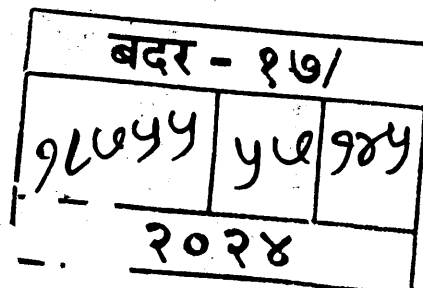 बदर - १७/
१८७५५ ५७ १४५
२०२४